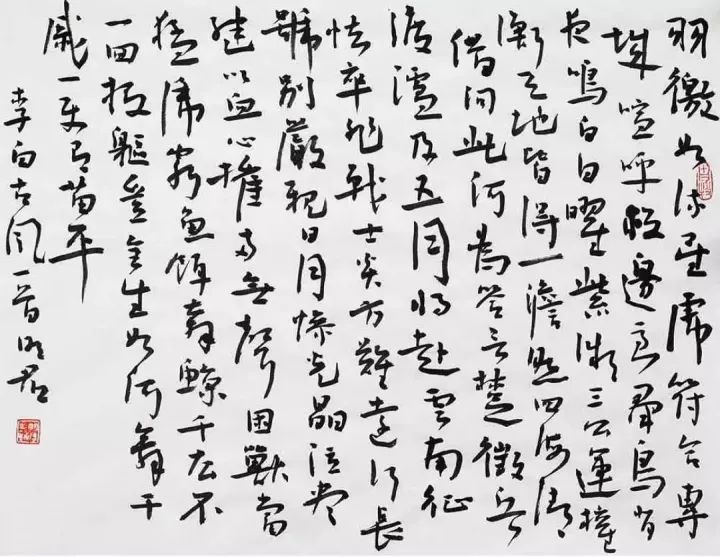 羽檄如流星虎符合專
城喧呼救邊急羣鳥皆
夜鳴白日曜紫微三公運權
衡天地皆得一澹然四海清
借問此何為答言楚徵兵
渡瀘及五月將赴雲南征
怯卒非戰士炎方難遠行長
號別嚴親日月慘光晶泣盡
繼以血心摧兩無聲困獸當
猛虎窮魚餌奔鯨千去不
一回投軀豈全生如何舞干
戚一使有苗平
李白古風一首